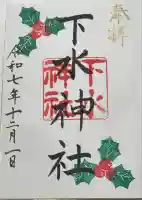 奉拝
下水神社
下水神社
令和七年十二月一日